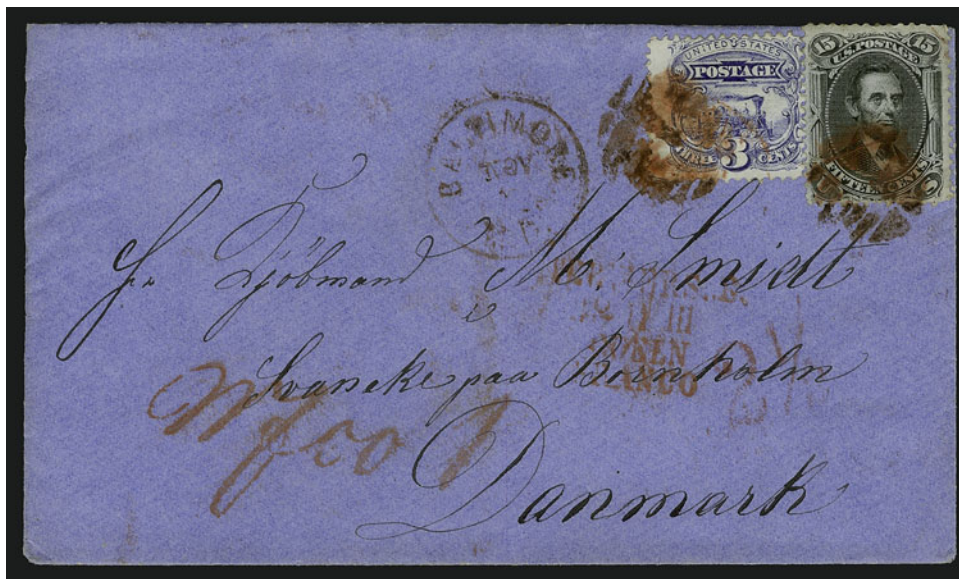 UNITED STATES
POSTAGE
THREE 3 CENTS
15 15
U.S. POSTAGE
FIFTEEN CENTS
BALTIMORE
NOV
Hr Kjöbmand M. Smidt
Svaneke paa Bornholm
Danmark